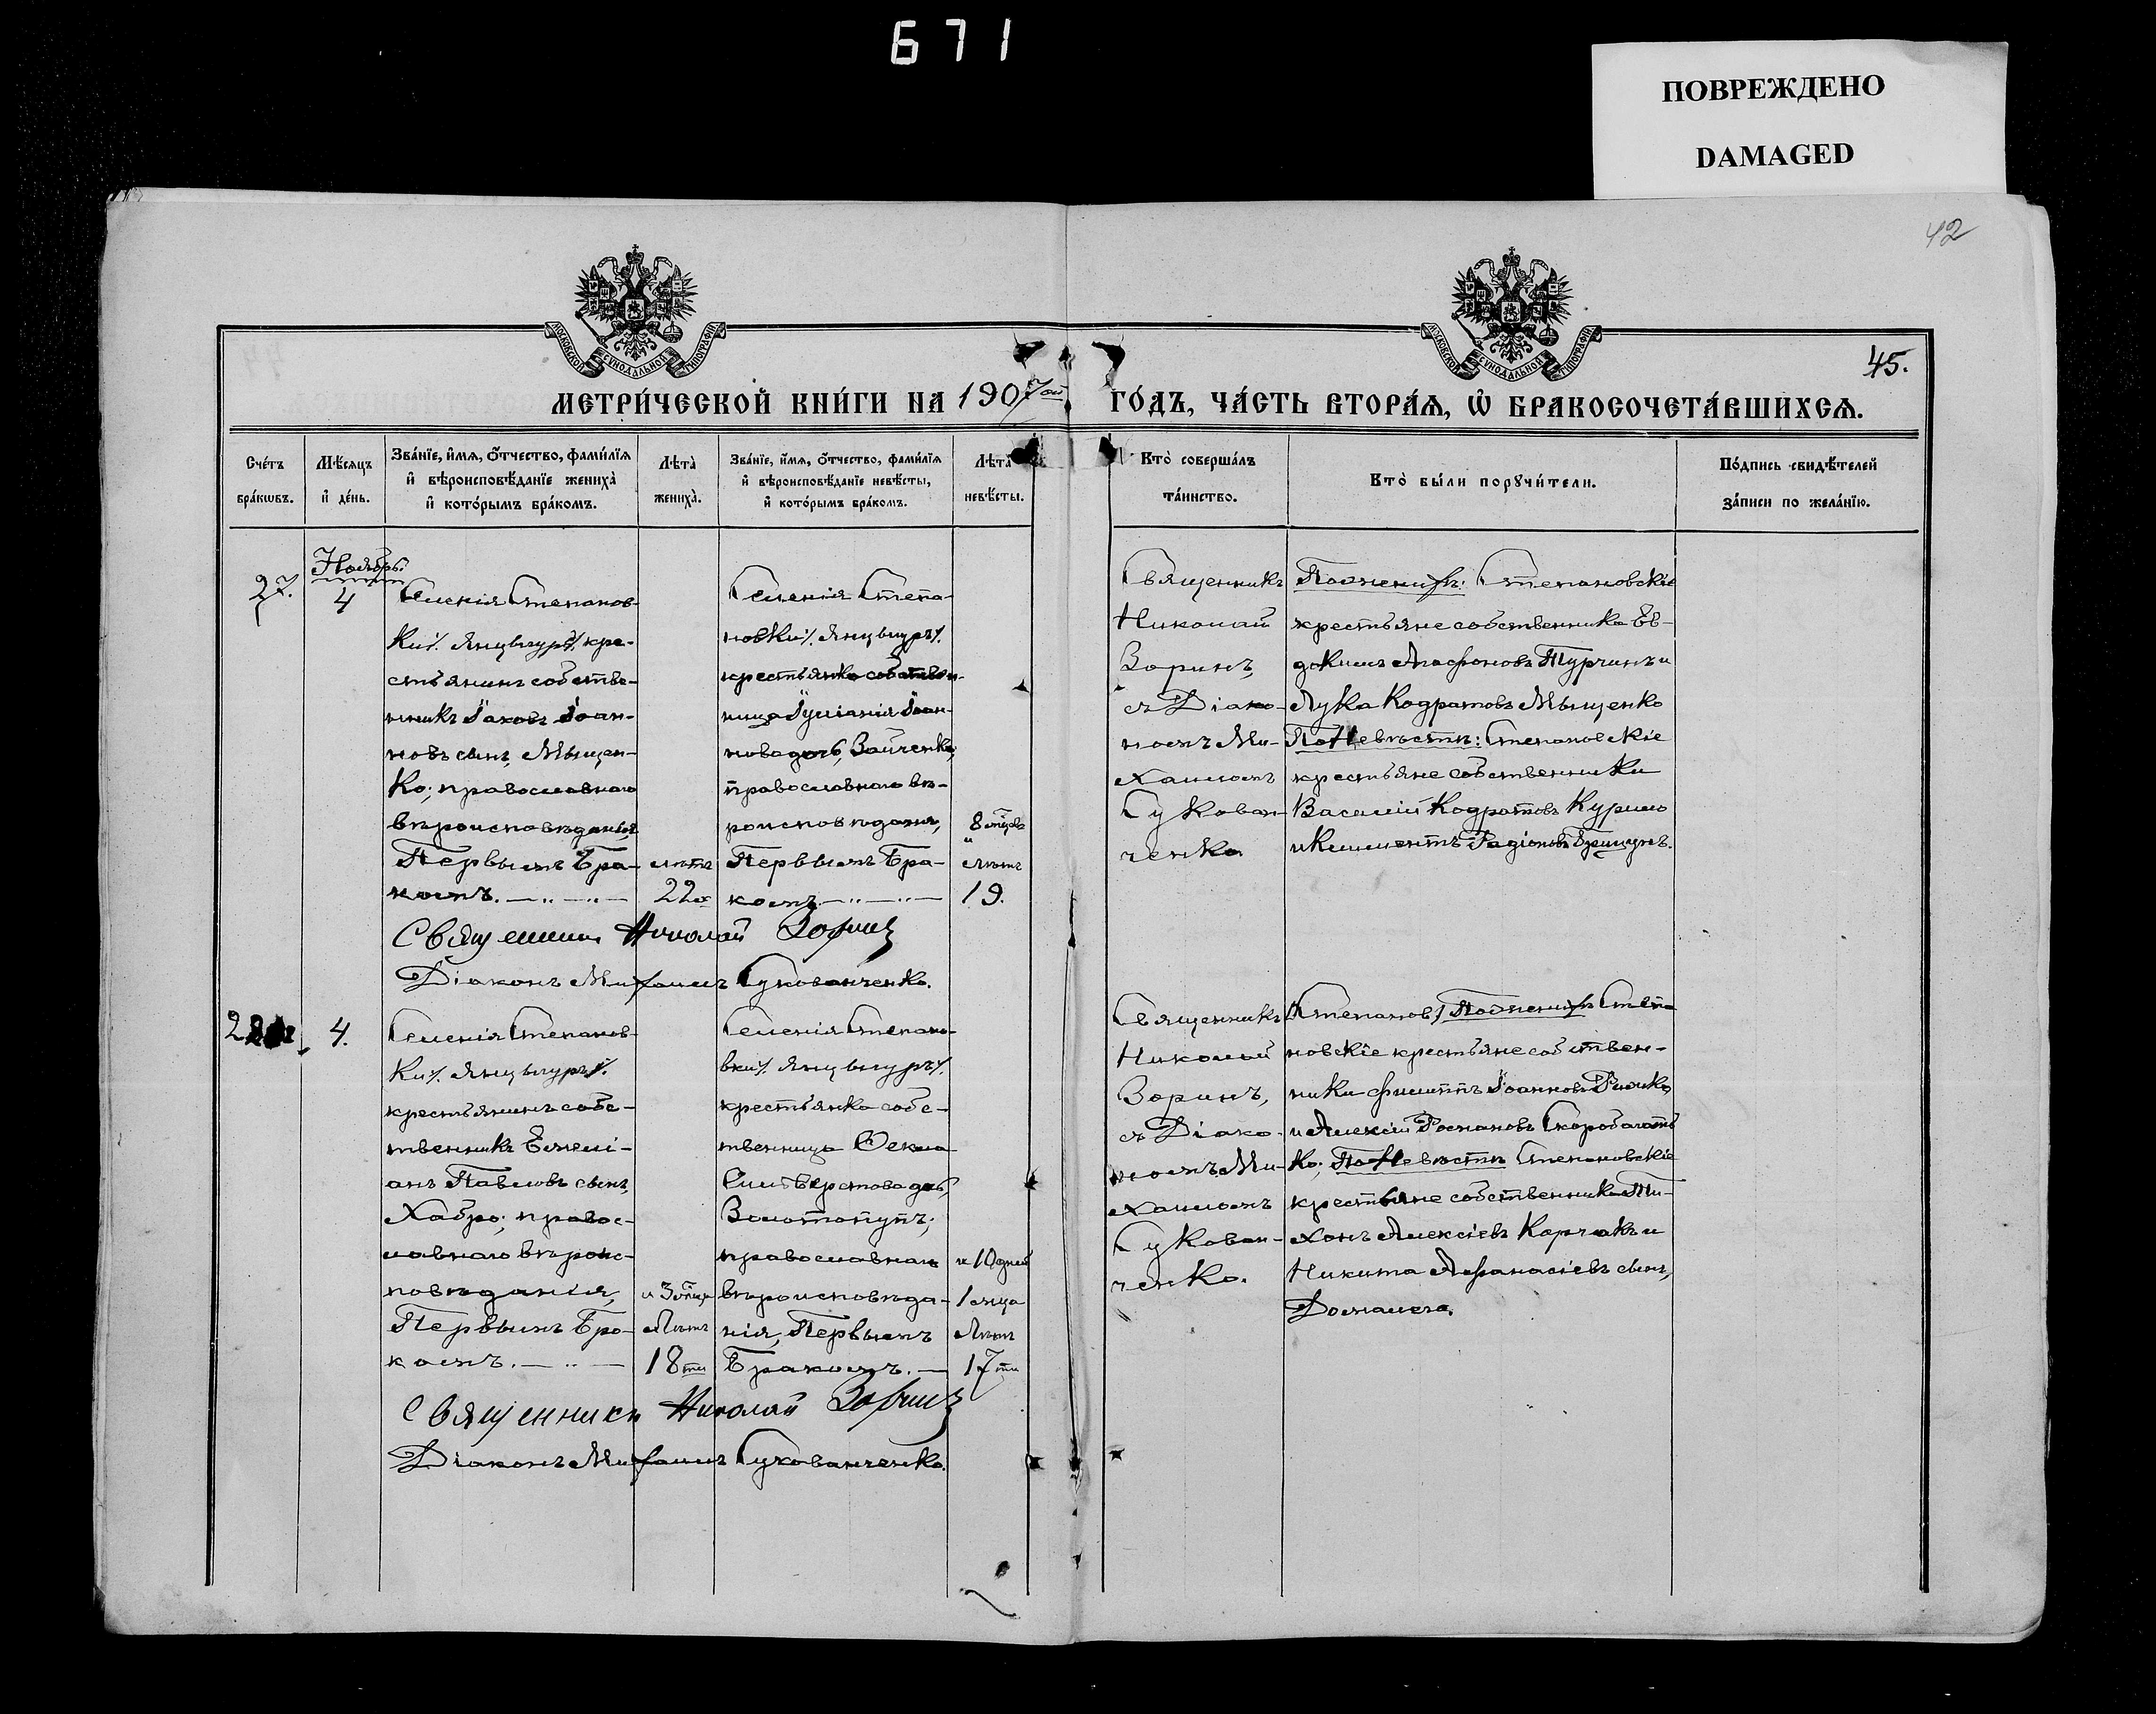 671
ПОВРЕЖДЕНО
DAMAGED
42
МОСКОВСКОЙ СѴНОДАЛЬНОЙ ТИПОГРАФІИ
МОСКОВСКОЙ СѴНОДАЛЬНОЙ ТИПОГРАФІИ
45.
МЕТРИ́ЧЕСКОЙ КНИ́ГИ НА 1907ой ГО́ДЪ, ЧА́СТЬ ВТОРА́Я, Ѡ҆ БРАКОСОЧЕТА́ВШИХСѦ.
Сче́тъ
бра́кѡвъ.
Мѣ́сяцъ
и҆ де́нь.
Зва́нїе, и҆́мя, ѻ҆́тчество, фами́лїя
и҆ вѣроисповѣ́данїе жениха̀
и҆ кото́рымъ бра́комъ.
Лѣта̀
жениха̀.
Зва́нїе, и҆́мя, ѻ҆́тчество, фами́лїя
и҆ вѣроисповѣ́данїе невѣ́сты,
и҆ кото́рымъ бра́комъ.
Лѣта̀
невѣ́сты.
Кто̀ соверша́лъ
та́инство.
Кто̀ бы́ли порꙋчи́тели.
По́дпись свидѣ́телей
за́писи по жела́нїю.
27.
Ноябрь.
4
Селенія Степанов-
ки /. Янцыпуръ /. кре-
стьянинъ собстве-
нникъ Іаковъ Іоан-
новъ сынъ, Мыщен-
ко; православнаго
вѣроисповѣданія,
Первымъ Бра-
комъ.
лѣтъ
22х
Селенія Степа-
новки /. Янцыпуръ /.
крестьянка собствен-
ница Іуліанія Іоан-
нова дочь, Зайченко;
православнаго вѣ-
роисповѣданія,
Первымъ Бра-
комъ.
8
и
лѣтъ
19.
Священникъ
Николай
Зоринъ,
съ Діако-
номъ Ми-
хаиломъ
Сукован-
ченко
По женихѣ: Степановскіе
крестьяне собственника Ев-
докимъ Агафоновъ Турчинъ и
Лука Кодратовъ Мыщенко
По Невѣстѣ: Степановскіе
крестьяне собственники
Василій Кодратовъ Курило
и Климентъ Радіоновъ
Священникъ Николай Зоринъ
Діаконъ Михаилъ Сукованченко.
28
4.
Селенія Степанов-
ки /. Янцыпуръ /.
крестьянинъ собс-
твенникъ Емелі-
анъ Павловъ сынъ,
Хабро; правос-
лавнаго вѣроис-
повѣданія,
Первымъ Бра-
комъ.
и 3
Лѣтъ
18ти
Селенія Степано-
вки /. Янцыпуръ /.
крестьянка собс-
твенница Ѳекла
Сильверстова дочь,
Золотопупъ;
православнаго
вѣроисповѣда-
нія, Первымъ
Бракомъ.
и 10 дней
1 мца
Лѣтъ
17ти
Священникъ
Николай
Зоринъ,
съ Діако-
номъ Ми-
хаиломъ
Сукован-
ченко.
По женихѣ Степа-
новскіе крестьяне собствен-
ники Филиппъ Іоанновъ
и Алексій Романовъ Скоробагать
ко; По Невѣстѣ Степановскіе
крестьяне собственника Ти-
хонъ Алексіевъ Корчакъ и
Никита Аѳанасіевъ сынъ,
Священникъ Николай Зоринъ
Діаконъ Михаилъ Сукованченко.